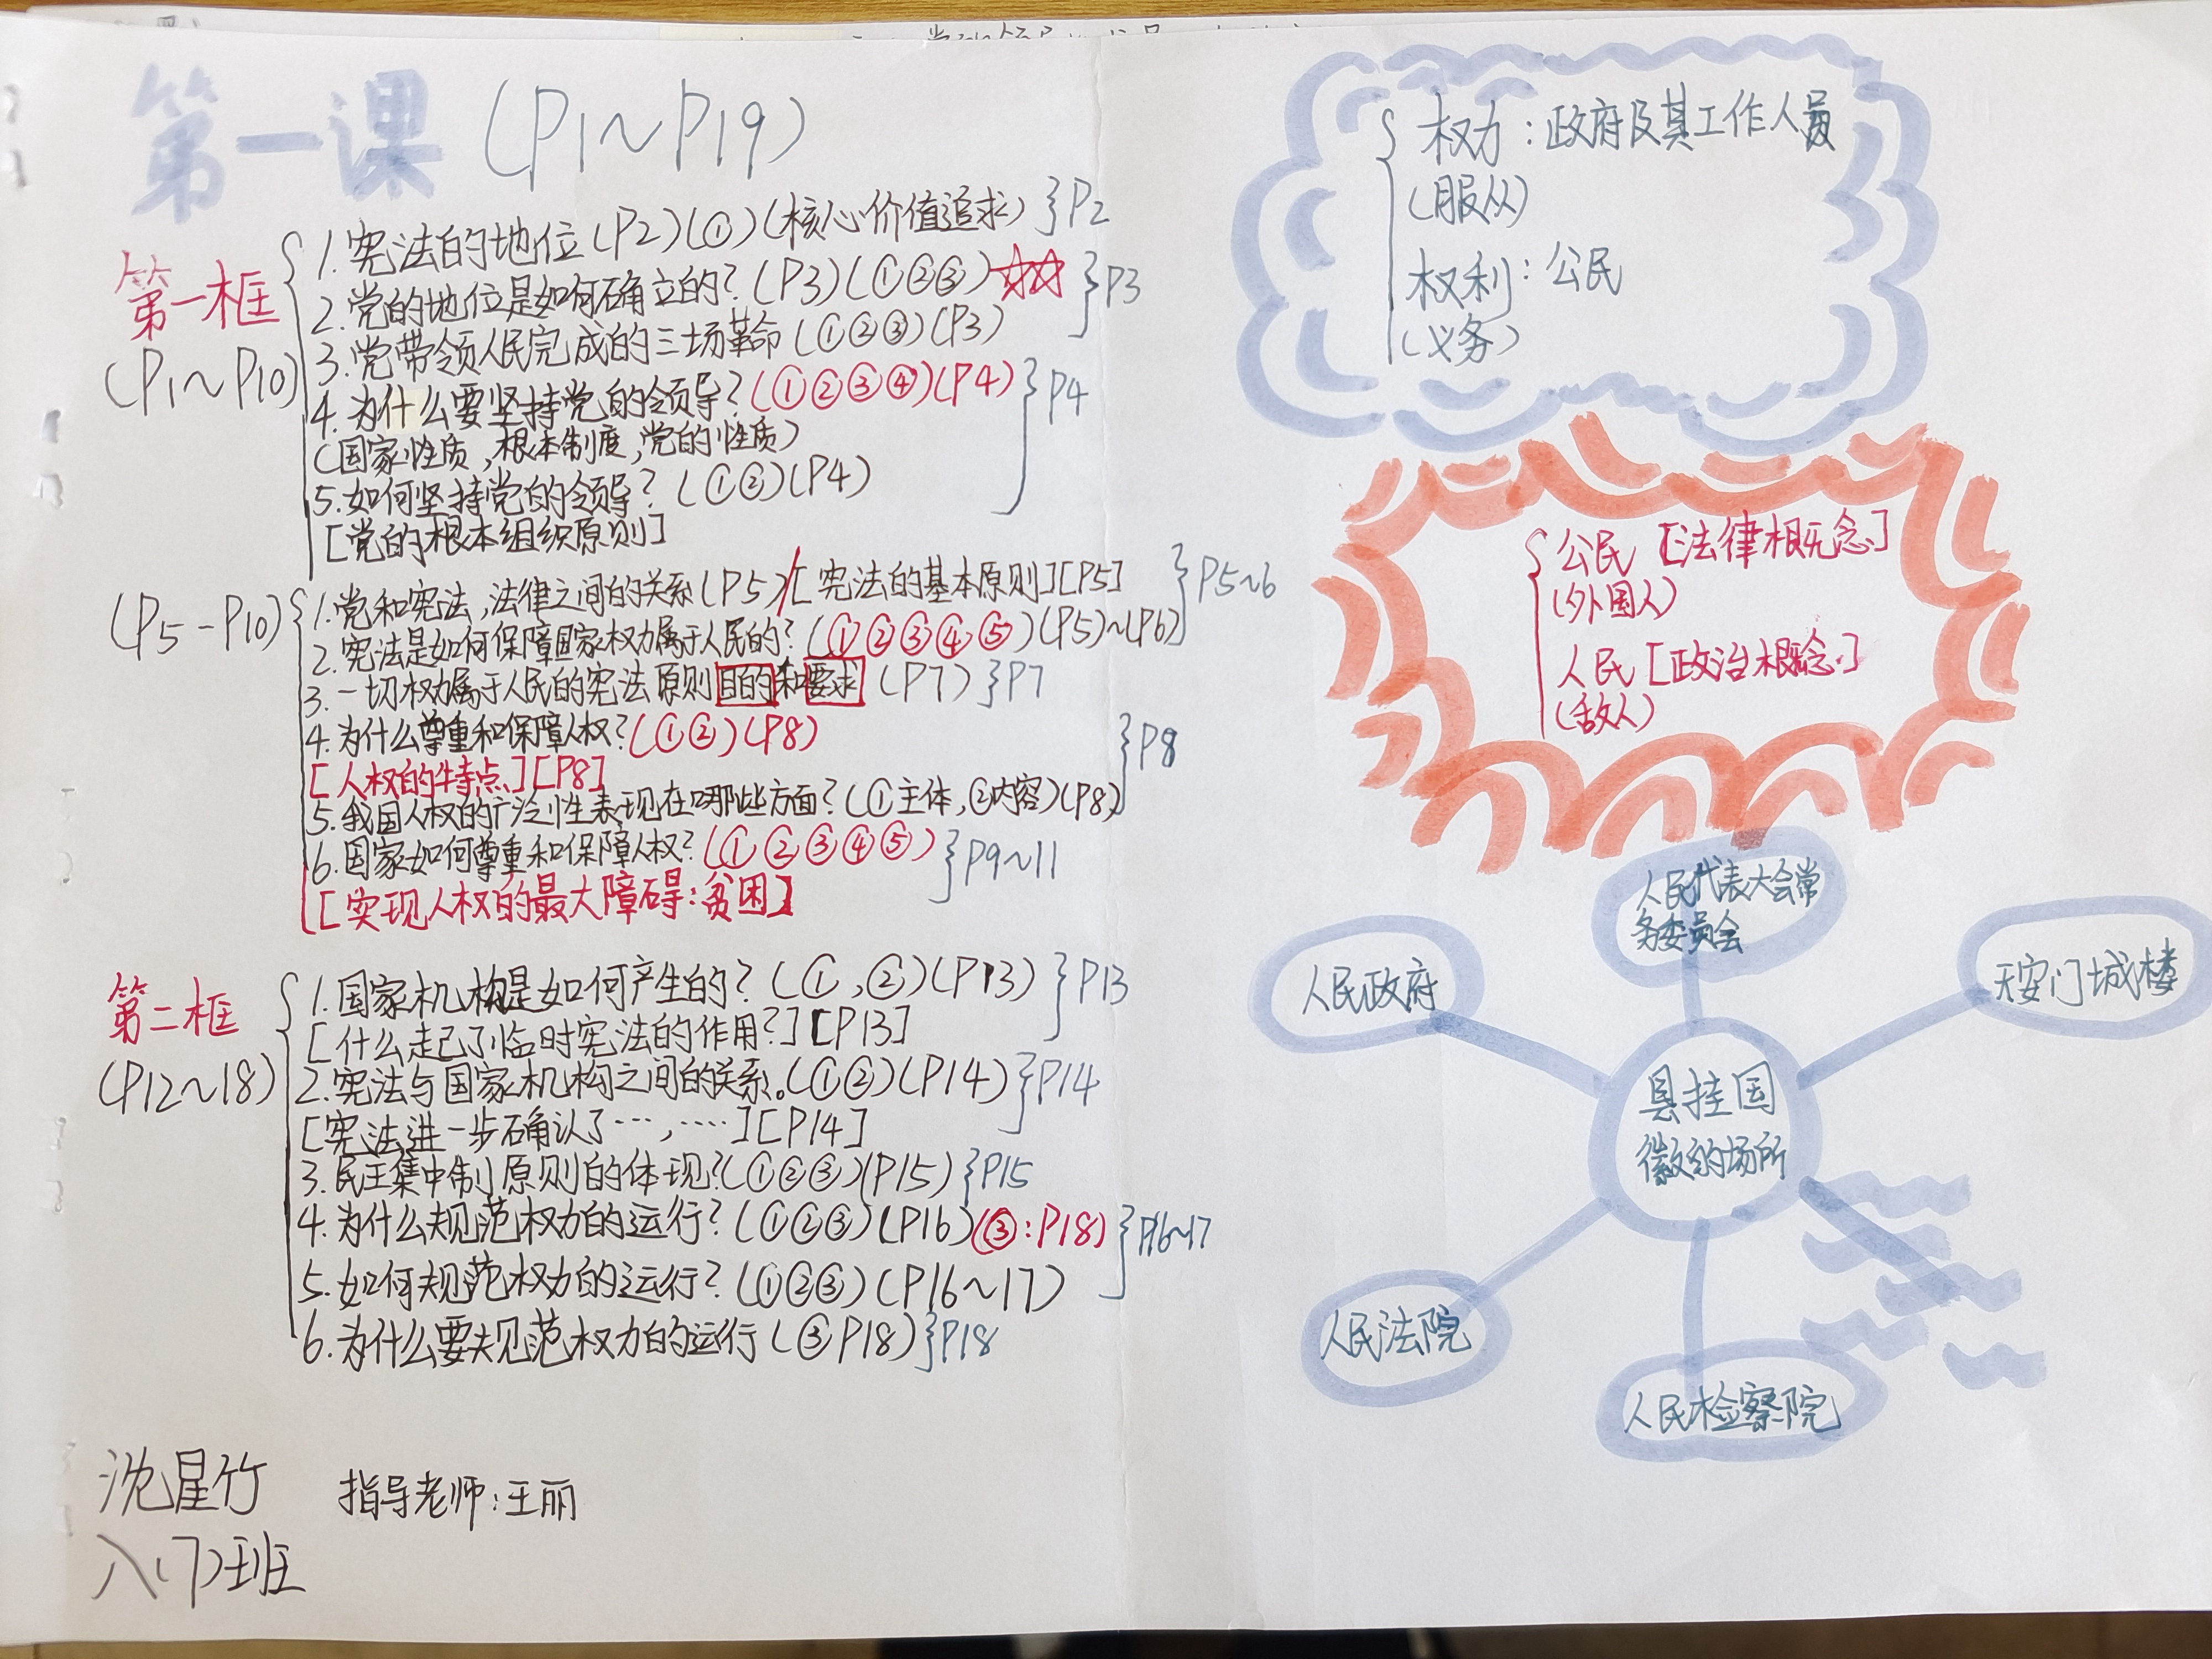 第一课 (P1～P19)
第一框
(P1～P10)
1.宪法的地位(P2)(①)(核心价值追求) }P2
2.党的地位是如何确立的?(P3)(①②③)☆☆ }P3
3.党带领人民完成的三场革命(①②③)(P3)
4.为什么要坚持党的领导?(①②③④)(P4) }P4
(国家性质,根本制度,党的性质)
5.如何坚持党的领导?(①②)(P4)
[党的根本组织原则]
(P5-P10)
1.党和宪法,法律之间的关系(P5)/[宪法的基本原则][P5] }P5~6
2.宪法是如何保障国家权力属于人民的?(①②③④⑤)(P5)~(P6)
3.一切权力属于人民的宪法原则目的和要求(P7) }P7
4.为什么尊重和保障人权?(①②)(P8) }P8
[人权的特点][P8]
5.我国人权的广泛性表现在哪些方面?(①主体,②内容)(P8)
6.国家如何尊重和保障人权?(①②③④⑤) }P9~11
[实现人权的最大障碍:贫困]
第二框
(P12～18)
1.国家机构是如何产生的?(①,②)(P13) }P13
[什么起了临时宪法的作用?][P13]
2.宪法与国家机构之间的关系。(①②)(P14) }P14
[宪法进一步确认了…,……][P14]
3.民主集中制原则的体现?(①②③)(P15) }P15
4.为什么规范权力的运行?(①②③)(P16)(③:P18) }P16~17
5.如何规范权力的运行?(①②③)(P16～17)
6.为什么要规范权力的运行(③P18) }P18
沈星竹 指导老师:王丽
八(7)班
权力:政府及其工作人员
(服从)
权利:公民
(义务)
公民[法律概念]
(外国人)
人民[政治概念]
(敌人)
人民代表大会常
务委员会
人民政府
天安门城楼
悬挂国
徽的场所
人民法院
人民检察院